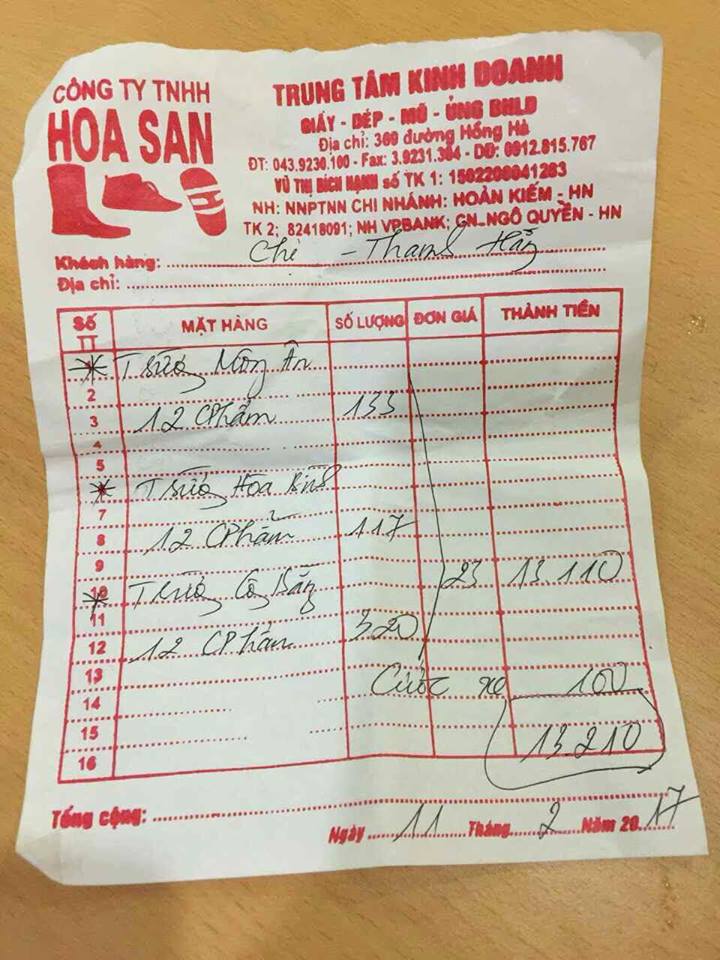 CÔNG TY TNHH
HOA SAN
TRUNG TÂM KINH DOANH
GIẦY - DÉP - MŨ - ỦNG BHLĐ
Địa chỉ: 360 đường Hồng Hà
ĐT: 043.9230.100 - Fax: 3.9231.384 - DĐ: 0912.815.767
VŨ THỊ BÍCH HẠNH số TK 1: 1502206041283
NH: NNPTNN CHI NHÁNH: HOÀN KIẾM - HN
TK 2; 82418091; NH VPBANK; CN..NGÔ QUYỀN - HN
Khách hàng: Chị - Thanh Hằng
Địa chỉ:
Số TT MẶT HÀNG SỐ LƯỢNG ĐƠN GIÁ THÀNH TIỀN
1 Trường
2
3 12 CPhẩm 133
4
5
Trường Hòa Bình
7
8 12 CPhẩm 117
9
10 Trường 23 13.110
11
12 12 CPhẩm 320
13
14 Cước xe 100
15
16 13.210
Tổng cộng:
Ngày 11 Tháng 2 Năm 2017